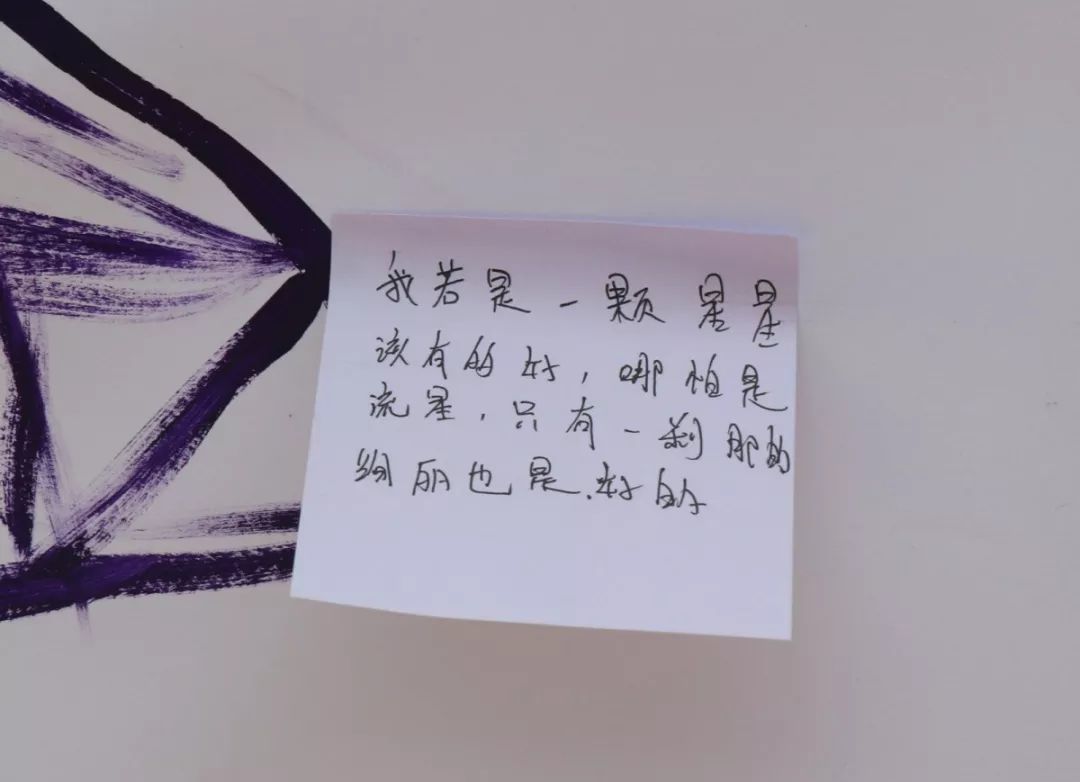 我若是一颗星星
该有的好,哪怕是
流星,只有一刹那的
绚丽也是.好的